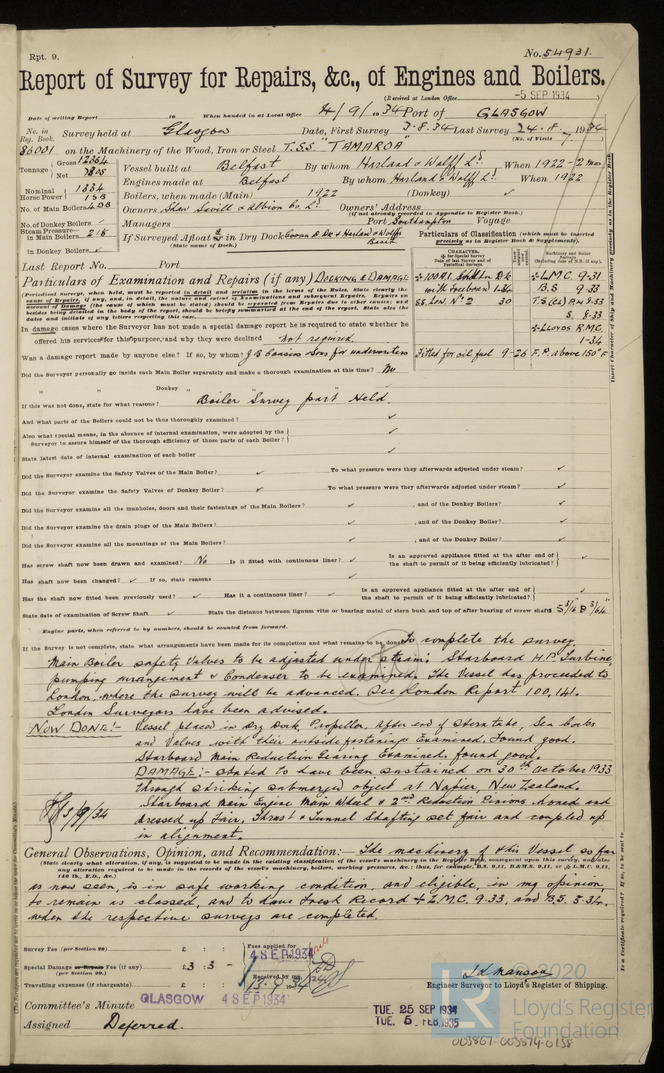 Rpt. 9.
No. 54931.
Report of Survey for Repairs, &c., of Engines and Boilers.
(Received at London Office -5 SEP 1934 )
Date of writing Report 19 When handed in at Local Office 4/9/1934 Port of GLASGOW
No. in Reg. Book. Survey held at Glasgow Date, First Survey 3.8.34 Last Survey 24.8. 1934
(No. of Visits 7 )
86001 on the Machinery of the Wood, Iron or Steel T.S.S. "TAMAROA"
Tonnage Gross 12354 Net 7805
Vessel built at Belfast By whom Harland & Wolff Ld. When 1922 - 2 mos
Engines made at Belfast By whom Harland & Wolff Ld. When 1922
Nominal Horse Power 1334
Boilers, when made (Main) 1922 (Donkey) ✓
No. of Main Boilers
Owners Shaw Savill & Albion Co. Ld. Owners' Address
(if not already recorded in Appendix to Register Book.)
No. of Donkey Boilers ✓
Managers Port Southampton Voyage
Steam Pressure in Main Boilers 215
If Surveyed Afloat or in Dry Dock Govan D. Dk & Harland & Wolffs Basin
(State name of Dock.)
in Donkey Boilers ✓
Particulars of Classification (which must be inserted precisely as in Register Book & Supplements).
Last Report No. Port
Particulars of Examination and Repairs (if any) DOCKING & DAMAGE
CHARACTER.
+100A1
with freeboard 1.34
SS. LON. No 2 30
Fitted for oil fuel 9-26 F.P. above 150°F
+L.M.C. 9.31
B.S. 9.33
T.S.(CL) 8.33
S. 8.33
+LLOYDS R.M.C. 1-34
In damage cases where the Surveyor has not made a special damage report he is required to state whether he
offered his services for this purpose, and why they were declined not required
Was a damage report made by anyone else? If so, by whom? J B Cousins & Sons for underwriters
Did the Surveyor personally go inside each Main Boiler separately and make a thorough examination at this time? No
" " Donkey " " " ✓
If this was not done, state for what reasons? Boiler Survey part Held
And what parts of the Boilers could not be thoroughly examined? ✓
Also what special means, in the absence of internal examination, were adopted by the
Surveyor to assure himself of the thorough efficiency of those parts of each Boiler? ✓
State latest date of internal examination of each boiler ✓
Did the Surveyor examine the Safety Valves of the Main Boiler? ✓ To what pressure were they afterwards adjusted under steam? ✓
Did the Surveyor examine the Safety Valves of Donkey Boiler? ✓ To what pressure were they afterwards adjusted under steam? ✓
Did the Surveyor examine all the manholes, doors and their fastenings of the Main Boilers? ✓ , and of the Donkey Boilers? ✓
Did the Surveyor examine the drain plugs of the Main Boilers? ✓ , and of the Donkey Boilers? ✓
Did the Surveyor examine all the mountings of the Main Boilers? ✓ , and of the Donkey Boilers? ✓
Has screw shaft now been drawn and examined? No Is it fitted with continuous liner? ✓ Is an approved appliance fitted at the after end of the shaft to permit of it being efficiently lubricated? ✓
Has shaft now been changed? ✓ If so, state reasons ✓
Has the shaft now fitted been previously used? ✓ Has it a continuous liner? ✓ Is an approved appliance fitted at the after end of the shaft to permit of it being efficiently lubricated? ✓
State date of examination of Screw Shaft ✓ State the distance between lignum vitæ or bearing metal of stern bush and top of after bearing of screw shaft
Engine parts, when referred to by numbers, should be counted from forward.
If the Survey is not complete, state what arrangements have been made for its completion and what remains to be done To complete the survey
Main Boiler safety valves to be adjusted under steam. Starboard H.P. Turbine
pumping arrangement & Condenser to be examined. The Vessel has proceeded to
London, where the survey will be advanced. See London Report 100,141.
London Surveyors have been advised.
NOW DONE:- Vessel placed in Dry Dock, Propellers, after end of sterntube, Sea Cocks
and Valves with their outside fastenings Examined. Found good.
Starboard Main Reduction Gearing Examined. found good.
DAMAGE:- stated to have been sustained on 30th October 1933
through striking submerged object at Napier, New Zealand.
Starboard Main Engine Main Wheel & 2nd Reduction Pinions honed and
dressed up fair. Thrust & Tunnel shafting set fair and coupled up
in alignment.
5/9/34
General Observations, Opinion, and Recommendation:- The machinery of this Vessel so far
as now seen, is in safe working condition, and eligible, in my opinion,
to remain as classed, and to have Fresh Record +L.M.C. 9.33, and B.S. 5.34.
when the respective surveys are completed.
Survey Fee (per Section 29) £ : :
Special Damage or Repair Fee (if any) £3 : 3 : -
(per Section 29.)
Travelling expenses (if chargeable) £ : :
Fees applied for
4 SEP 1934
Received by me,
Engineer Surveyor to Lloyd's Register of Shipping.
Committee's Minute GLASGOW 4 SEP 1934
TUE. 25 SEP 1934
TUE. 5 FEB 1935
Assigned Deferred.
© 2020
LR
Lloyd's Register
Foundation
003867-003874-0158